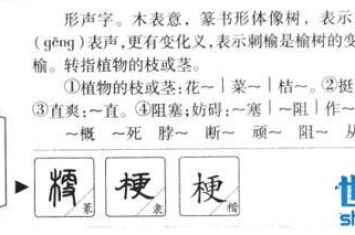 形声字。木表意,篆书形体像树,表示
(gěng)表声,更有变化义,表示刺榆是榆树的变
榆。转指植物的枝或茎。
①植物的枝或茎:花~|菜~|桔~。②挺
③直爽:~直。④阻塞;妨碍:~塞|~阻|作~
~概 ~死 脖~ 断~ 顽~ 阻~ 从
梗 梗 梗
篆 隶 楷